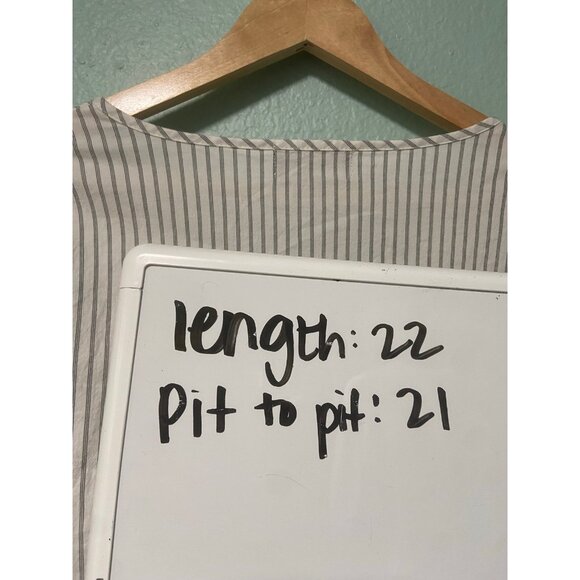 length: 22
pit to pit: 21